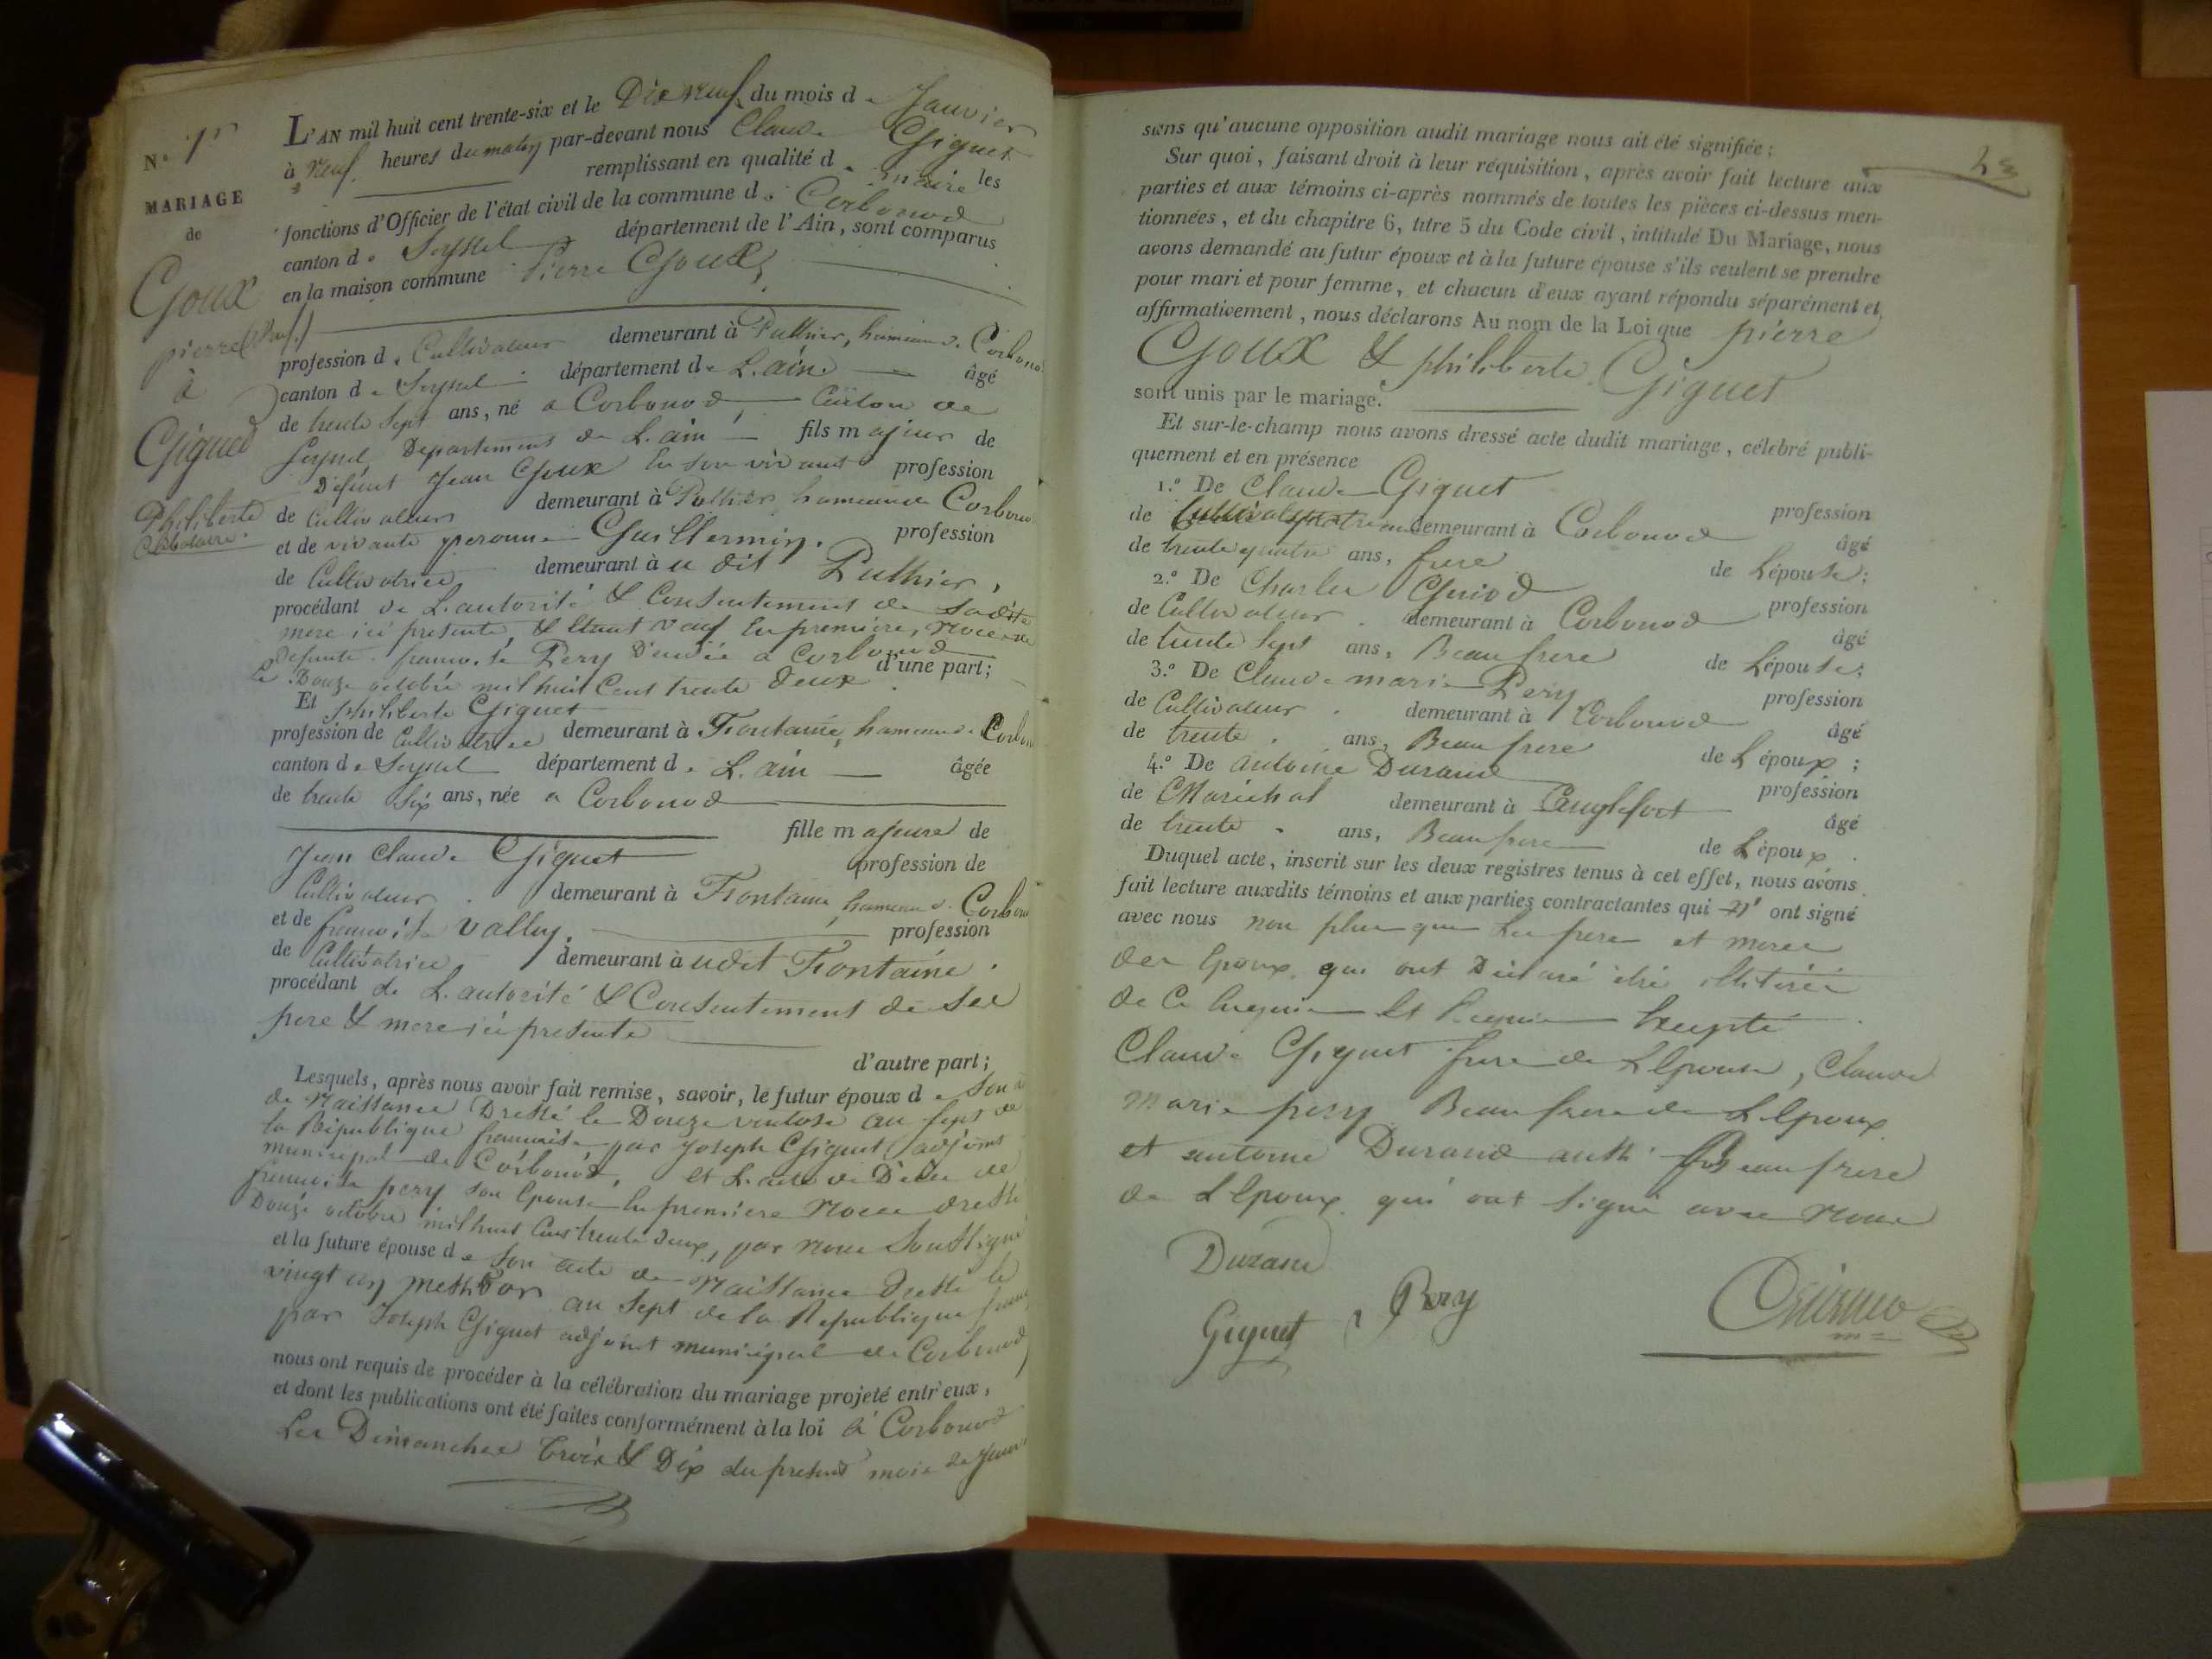 N.o 1er
MARIAGE
de
Goux
pierre (veuf)
à
Giguet
Philiberte
Célibataire.
L'AN mil huit cent trente-six et le Dix Neuf du mois de Janvier
à Neuf heures du matin par-devant nous Claude Giguet
remplissant en qualité de maire les
fonctions d'Officier de l'état civil de la commune de Corbonod
canton de Seyssel département de l'Ain, sont comparus
en la maison commune Pierre Goux,
profession de Cultivateur demeurant à Puthier, hameau de Corbono
canton de Seyssel département de L'ain âgé
de trente sept ans, né a Corbonod, Canton de
Seyssel Departement de L'ain fils majeur de
Défunt Jean Goux En son vivant profession
de Cultivateur demeurant à Puthier hameau de Corbono
et de vivante peronne Guillermin. profession
de Cultivatrice demeurant à u dit Puthier,
procédant de L'autorité & Consentement de sadite
mere ici presente, & Etant veuf En premiere, Noce de
Defunte francoise Pery Décédée a Corbonod
le Douze octobre mil huit Cent trente deux d'une part;
Et philiberte Giguet
profession de Cultivatrice demeurant à Fontaine, hameau de Corbon
canton de Seyssel département de L'ain âgée
de trente Six ans, née a Corbonod
fille majeure de
Jean Claude Giguet profession de
Cultivateur demeurant à Fontaine, hameau de Corbon
et de francoise Vallin. profession
de Cultivatrice demeurant à udit Fontaine.
procédant de L'autorité & Consentement de ses
pere & mere ici presents
d'autre part;
Lesquels, après nous avoir fait remise, savoir, le futur époux de Son a
de Naissance Dressé le Douze ventose an Sept de
la République francaise, par Joseph Giguet adjoint
municipal de Corbonod, et L'acte de Décès de
francoise pery son Epouse En premiere Noce dressé
Douze octobre mil huit Cent trente deux, par Nous Soussigné
et la future épouse de Son acte de Naissance Dressé le
vingt un messidor an Sept de la République franc
par Joseph Giguet adjoint municipal de Corbonod
nous ont requis de procéder à la célébration du mariage projeté entr'eux,
et dont les publications ont été faites conformément à la loi à Corbonod
Les Dimanches trois & Dix du present mois de Janv
23
sans qu'aucune opposition audit mariage nous ait été signifiée;
Sur quoi, faisant droit à leur réquisition, après avoir fait lecture aux
parties et aux témoins ci-après nommés de toutes les pièces ci-dessus men-
tionnées, et du chapitre 6, titre 5 du Code civil, intitulé Du Mariage, nous
avons demandé au futur époux et à la future épouse s'ils veulent se prendre
pour mari et pour femme, et chacun d'eux ayant répondu séparément et
affirmativement, nous déclarons Au nom de la Loi que pierre
Goux & philiberte Giguet
sont unis par le mariage.
Et sur-le-champ nous avons dressé acte dudit mariage, célébré publi-
quement et en présence
1.o De Claude Giguet profession
de Cultivateur demeurant à Corbonod âgé
de trente quatre ans, frere de L'épouse;
2.o De Charles Guiod profession
de Cultivateur demeurant à Corbonod âgé
de trente Sept ans, Beau frere de L'épouse;
3.o De Claude marie Pery profession
de Cultivateur demeurant à Corbonod âgé
de trente ans, Beau frere de L'époux;
4.o De antoine Durand profession
de Maréchal demeurant à Anglefort âgé
de trente ans, Beau frere de L'époux.
Duquel acte, inscrit sur les deux registres tenus à cet effet, nous avons
fait lecture auxdits témoins et aux parties contractantes qui n' ont signé
avec nous non plus que Les peres et meres
des Epoux qui ont Déclaré être illitérés
de Ce Enquis Et Requis Excepté
Claude Giguet frere de L'Epouse, Claude
Marie pery Beau frere de L'Epoux
et antoine Durand aussi Beau frere
de L'Epoux qui ont Signé avec Nous
Durand
Giguet Pery